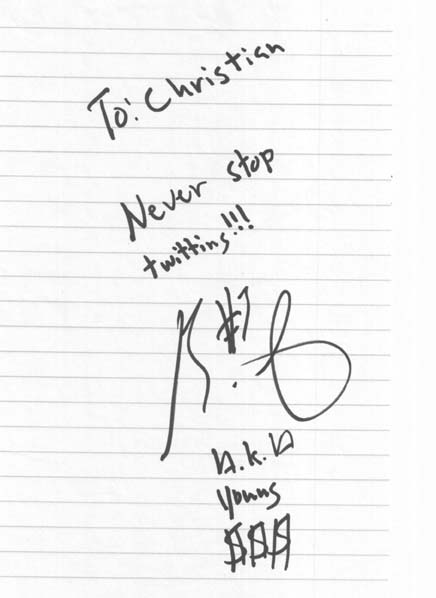 To: Christian
Never stop
twitting!!!
#7
A.K.A
Young
$$$